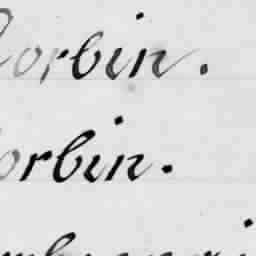 Corbin.
orbin.